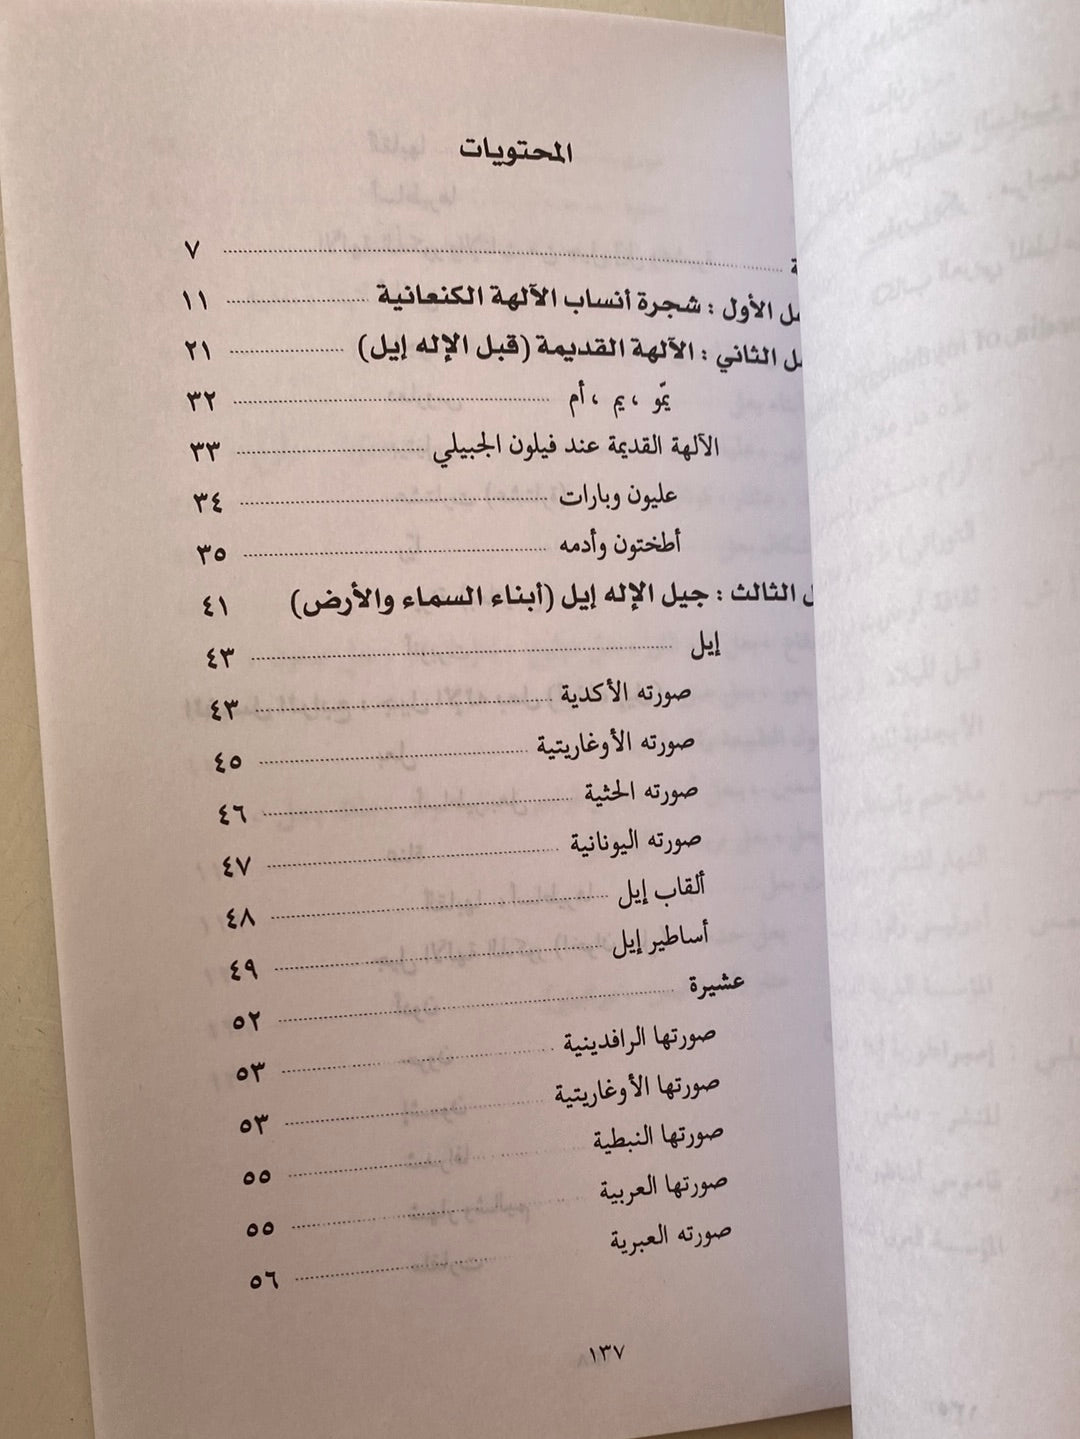 المحتويات
ة ........ ٧
ل الأول : شجرة أنساب الآلهة الكنعانية ........ ١١
ل الثاني : الآلهة القديمة (قبل الإله إيل) ........ ٢١
يمّو ، يم ، أم ........ ٣٢
الآلهة القديمة عند فيلون الجبيلي ........ ٣٣
عليون وبارات ........ ٣٤
أطختون وأدمه ........ ٣٥
ل الثالث : جيل الإله إيل (أبناء السماء والأرض) ٤١
إيل ........ ٤٣
صورته الأكدية ........ ٤٣
صورته الأوغاريتية ........ ٤٥
صورته الحثية ........ ٤٦
صورته اليونانية ........ ٤٧
ألقاب إيل ........ ٤٨
أساطير إيل ........ ٤٩
عشيرة ........ ٥٢
صورتها الرافدينية ........ ٥٣
صورتها الأوغاريتية ........ ٥٣
صورتها النبطية ........ ٥٥
صورتها العربية ........ ٥٥
صورته العبرية ........ ٥٦
١٣٧